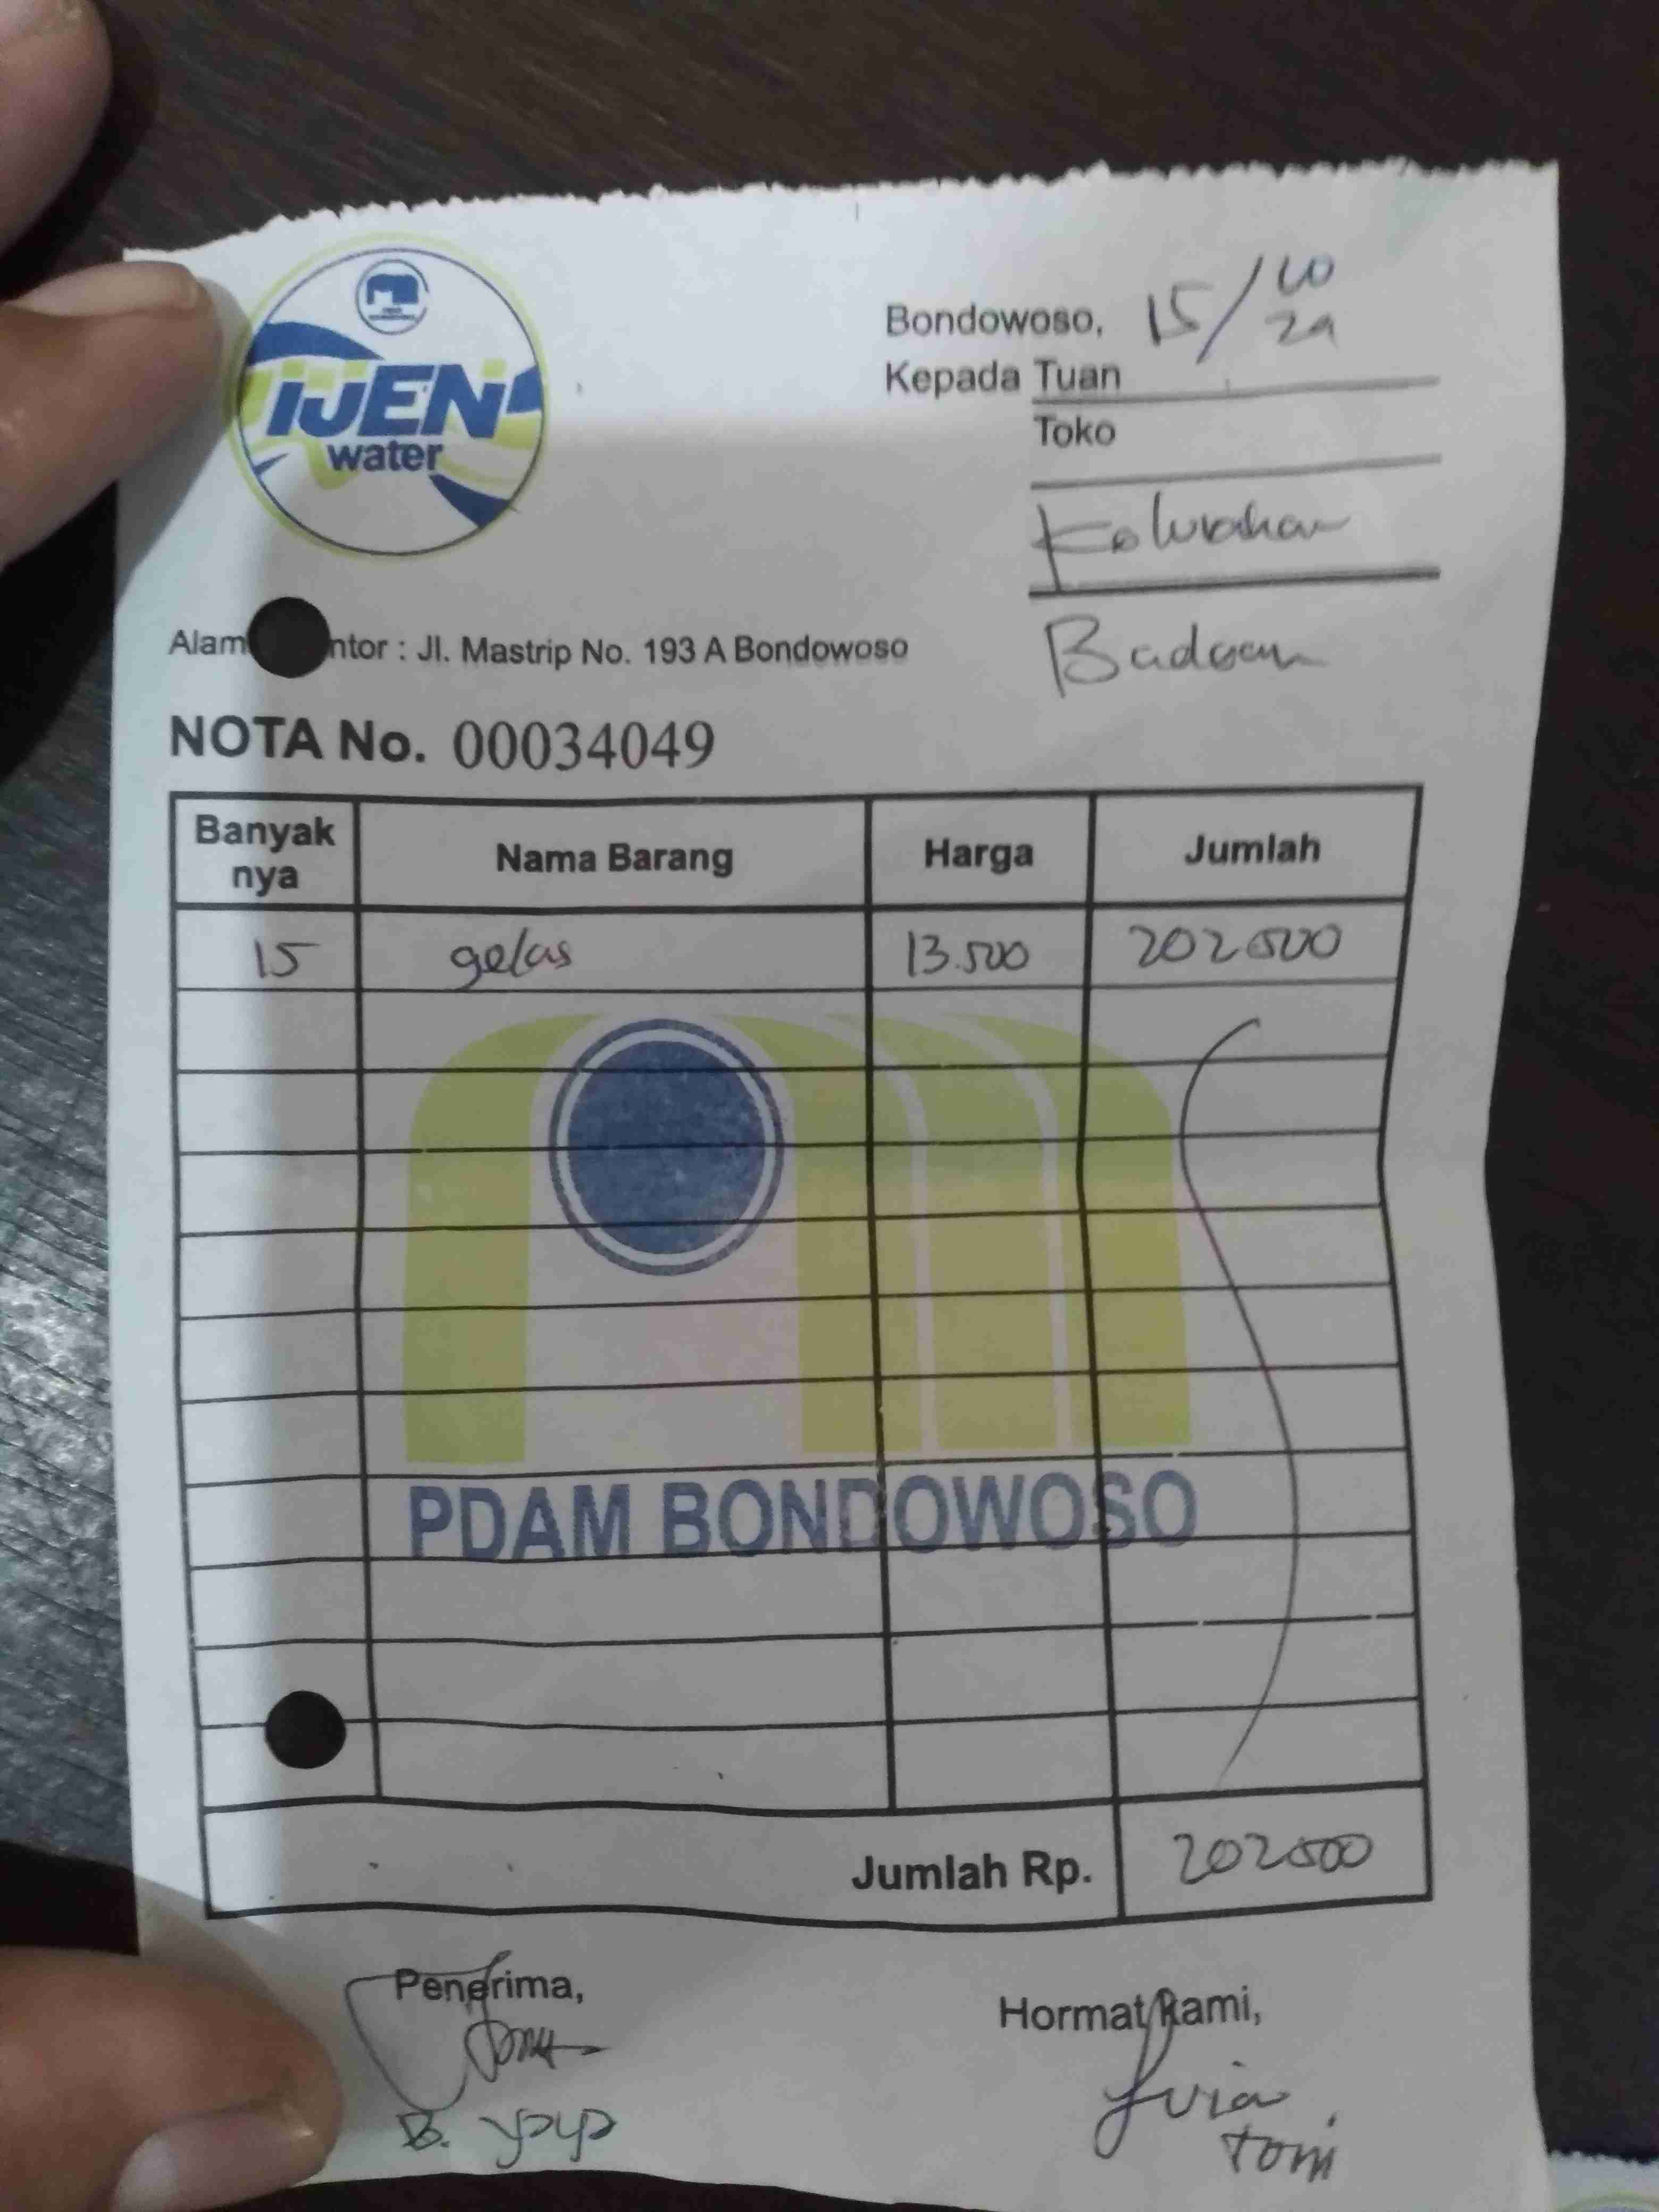 IJEN
water
Bondowoso, 15/10
24
Kepada Tuan
Toko
Kelurahan
Badean
Alam ntor : Jl. Mastrip No. 193 A Bondowoso
NOTA No. 00034049
Banyak nya Nama Barang Harga Jumlah
15 gelas 13.500 202500
PDAM BONDOWOSO
Jumlah Rp. 202500
Penerima, Hormat Kami,
B. yoyo
Tom